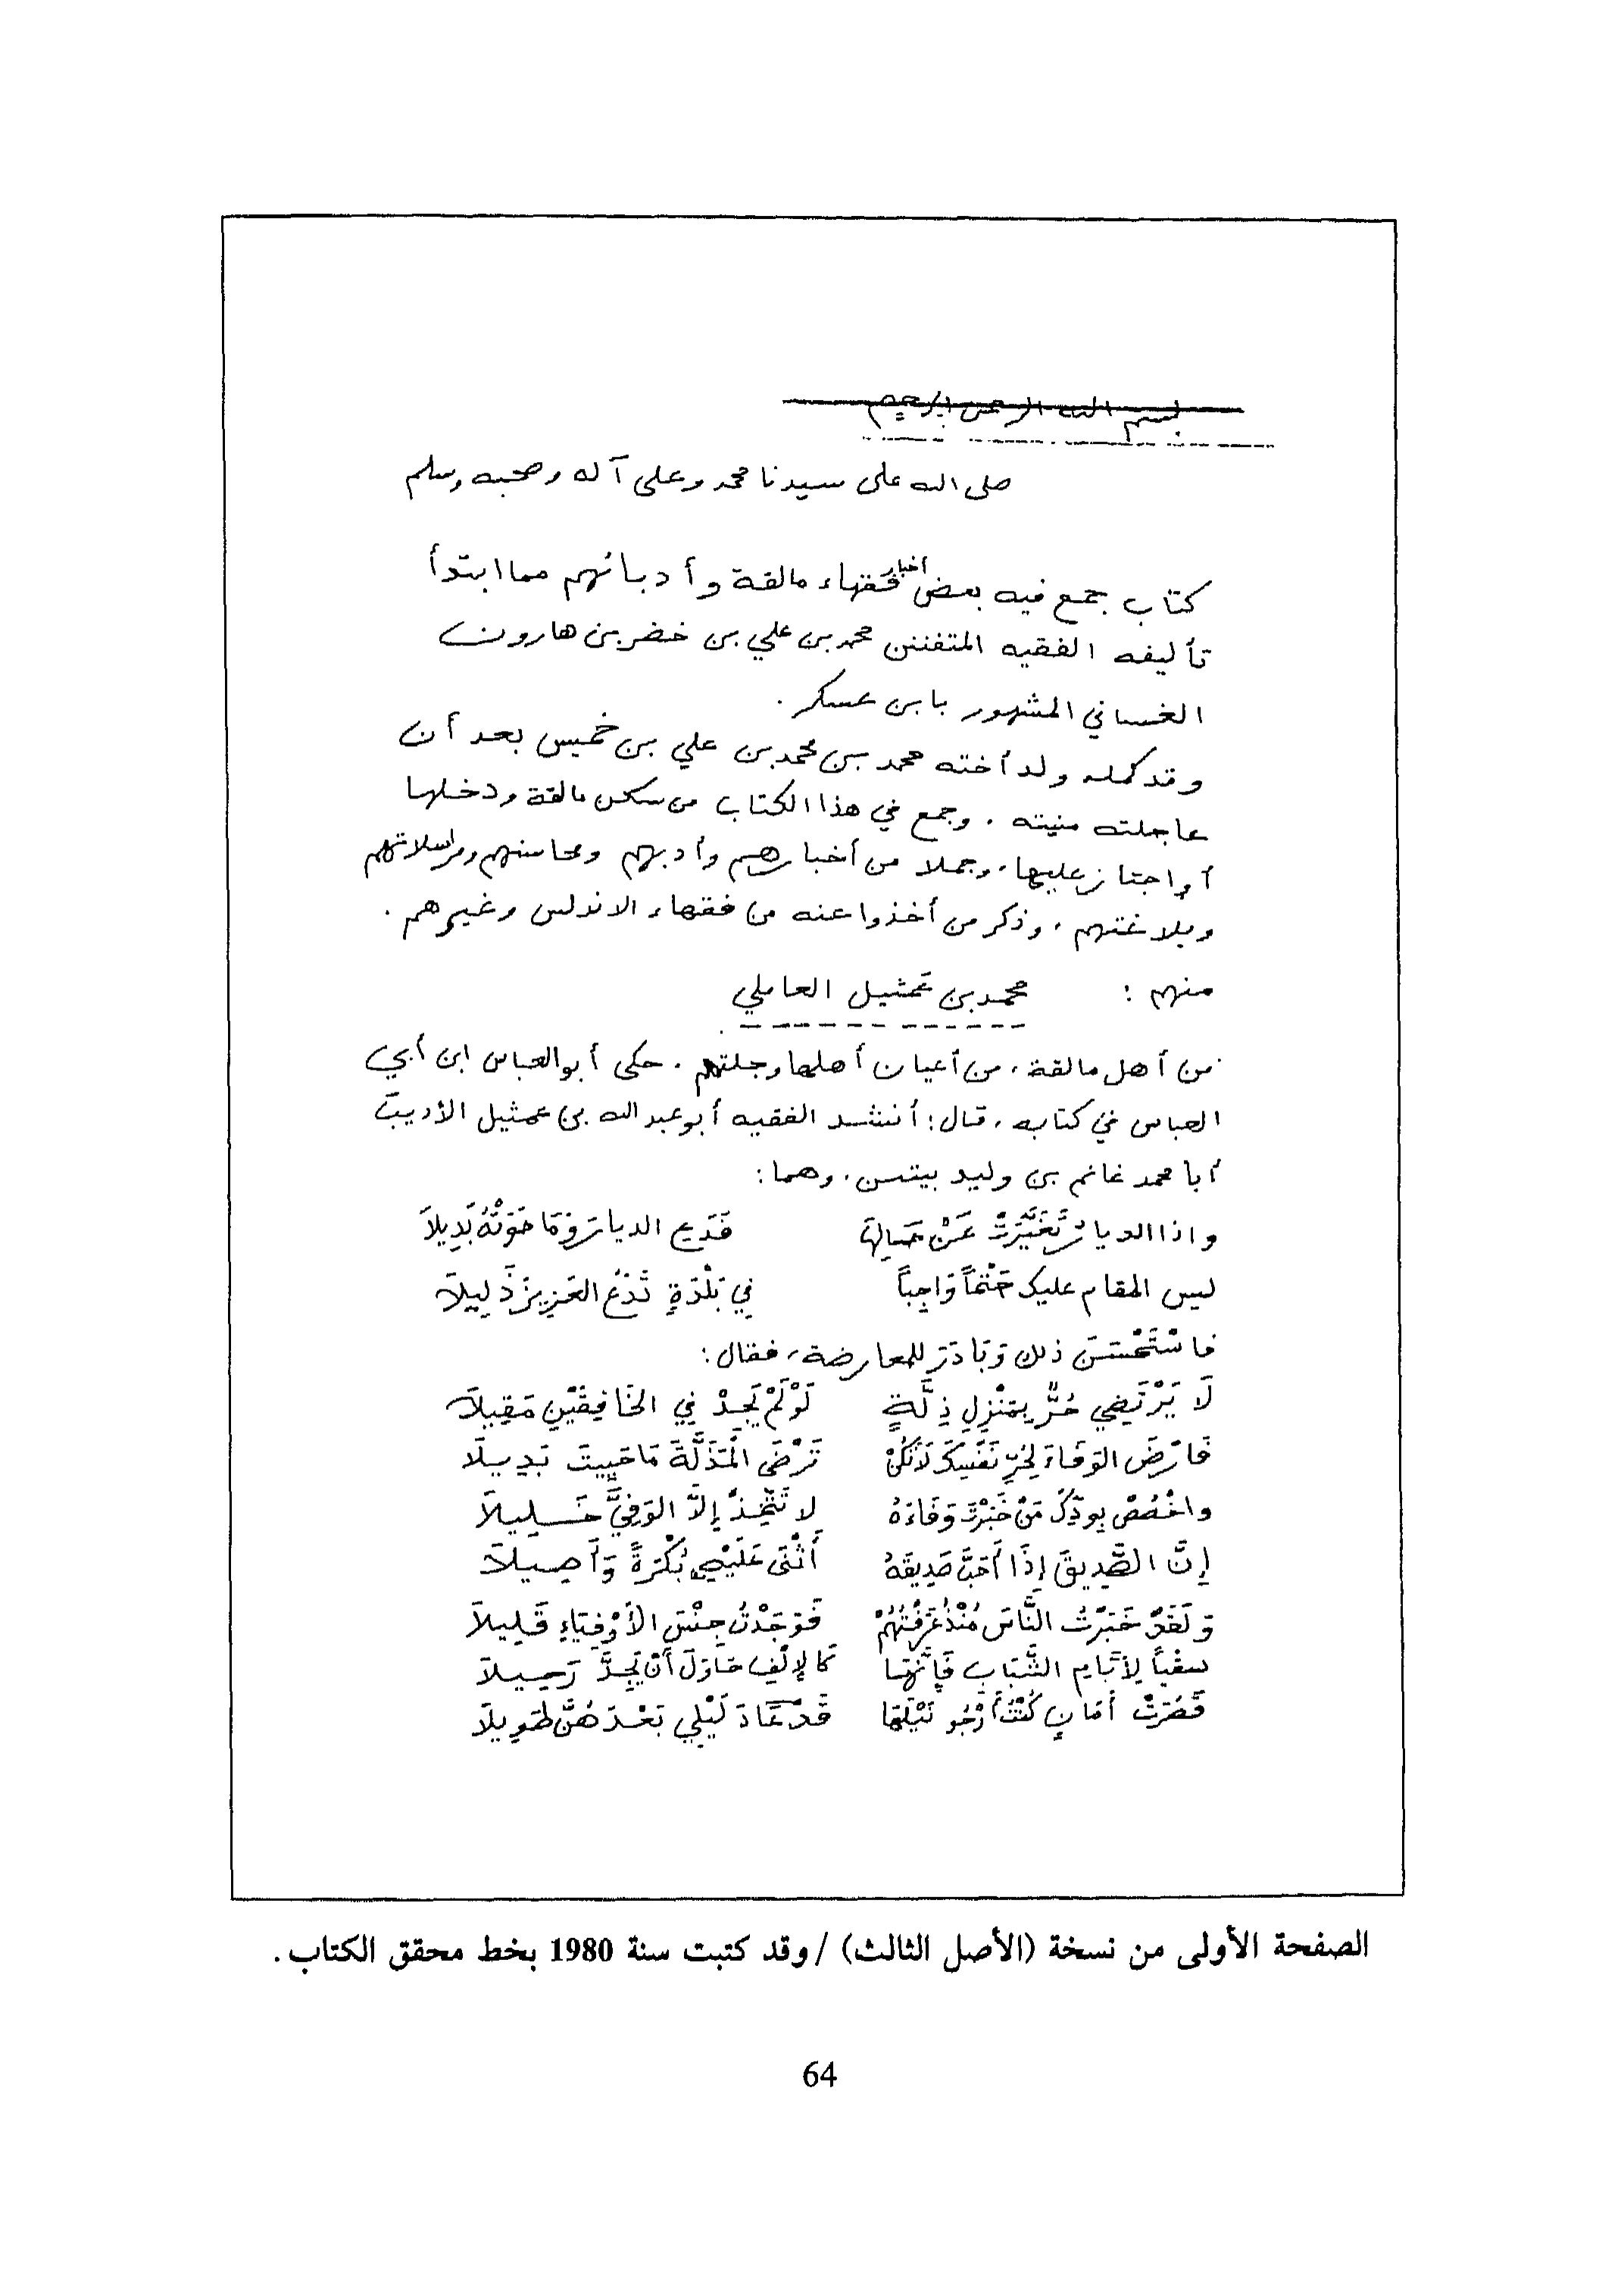 بسم الله الرحمن الرحيم
صلى الله على سيدنا محمد وعلى آله وصحبه وسلم
كتاب جمع فيه بعض أخبار فقهاء مالقة وأدبائهم مما ابتدأ
تأليفه الفقيه المتفنن محمد بن علي بن خضر بن هارون
الغساني المشهور بابن عسكر.
وقد كمله ولد أخته محمد بن محمد بن علي بن خميس بعد أن
عاجلته منيته. وجمع في هذا الكتاب من سكن مالقة ودخلها
أو اجتاز عليها، وجملا من أخبارهم وأدبهم ومحاسنهم ومراسلاتهم
وبلاغتهم، وذكر من أخذوا عنه من فقهاء الاندلس وغيرهم.
منهم : محمد بن عمثيل العاملي
من أهل مالقة، من أعيان أهلها وجلتهم. حكى أبو العباس ابن أبي
العباس في كتابه، قال: أنشد الفقيه أبو عبد الله بن عمثيل الأديبَ
أبا محمد غانم بن وليد بيتين، وهما:
واذا الديارُ تَغَيَّرَتْ عَنْ حَالِهَا فَدَعِ الديارَ وَمَا حَوَتْهُ بَدِيلاَ
ليس المقام عليك حَتْماً وَاجِباً فِي بَلْدَةٍ تَدَعُ العَزِيزَ ذَلِيلاَ
فاسْتَحْسَنَ ذلك وَبَادَرَ للمعارضة، فقال:
لَا يَرْتَضِي حُرٌّ بِمَنْزِلِ ذِلَّةٍ لَوْ لَمْ يَجِدْ فِي الخَافِقَيْنِ مَقِيلاَ
فَارْضَ الوَفَاءَ لِحُرِّ نَفْسِكَ لَا تَكُنْ تَرْضَى الْمَذَلَّةَ مَا حَيِيتَ بَدِيلَا
واخْصُصْ بِوِدِّكَ مَنْ خَبَرْتَ وَفَاءَهُ لا تَتَّخِذْ إِلَّا الوَفِيَّ خَلِيلاَ
إِنَّ الصَّدِيقَ إِذَا أَحَبَّ صَدِيقَهُ أَثْنَى عَلَيْهِ بُكْرَةً وَأَصِيلاَ
وَلَقَدْ خَبَرْتُ النَّاسَ مُنْذُ عَرَفْتُهُمْ فَوَجَدْتُ جِنْسَ الأَوْفِيَاءِ قَلِيلاَ
سقْياً لِأَيَّامِ الشَّبَابِ فَإِنَّهَا كَالإِلْفِ حَاوَلَ أَنْ يَجِدَّ رَحِيلاَ
قَصُرَتْ أمَانٍ كُنْتُ أَرْجُو نَيْلَهَا قَدْ عَادَ لَيْلِي بَعْدَهُنَّ طَوِيلاَ
الصفحة الأولى من نسخة (الأصل الثالث) / وقد كتبت سنة 1980 بخط محقق الكتاب.
64